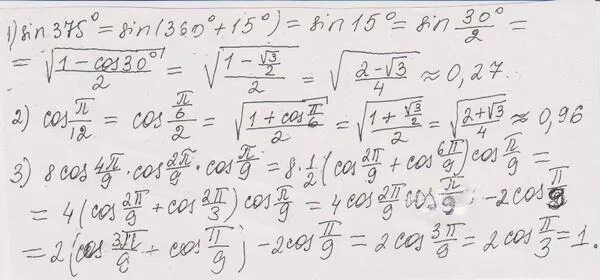 1) sin 375° = sin(360° + 15°) = sin 15° = sin 30°/2 =
= √((1 - cos30°)/2) = √((1 - √3/2)/2) = √((2-√3)/4) ≈ 0,27.
2) cos π/12 = cos (π/6)/2 = √((1 + cos π/6)/2) = √((1 + √3/2)/2) = √((2+√3)/4) ≈ 0,96
3) 8 cos 4π/9 · cos 2π/9 · cos π/9 = 8 · 1/2 (cos 2π/9 + cos 6π/9) cos π/9 =
= 4 (cos 2π/9 + cos 2π/3) cos π/9 = 4 cos 2π/9 cos π/9 - 2 cos π/9
= 2 (cos 3π/9 + cos π/9) - 2 cos π/9 = 2 cos 3π/9 = 2 cos π/3 = 1.